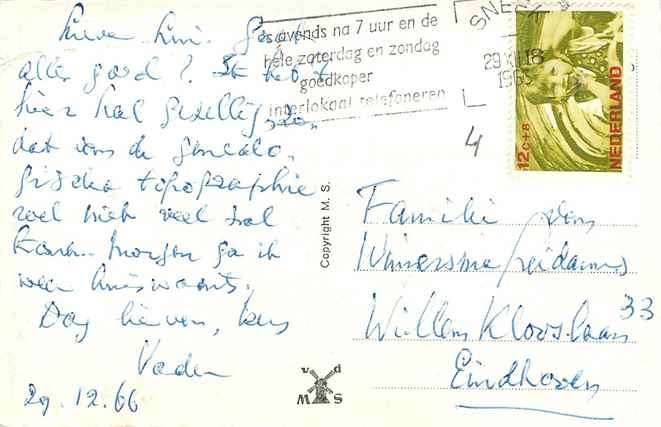 Lieve
alles goed? Ik heb het
hier heel gezellig, zo
dat
typographie
wel niet veel zal
komen. Morgen ga ik
weer huiswaarts.
Dag lieven,
Vader
29.12.66
's avonds na 7 uur en de
hele zaterdag en zondag
goedkoper
interlokaal telefoneren
SNE
29 XII 18
196
12c+8
NEDERLAND
4
Copyright M. S.
v d
M S
Familie van
Willem Klooslaan 33
Eindhoven